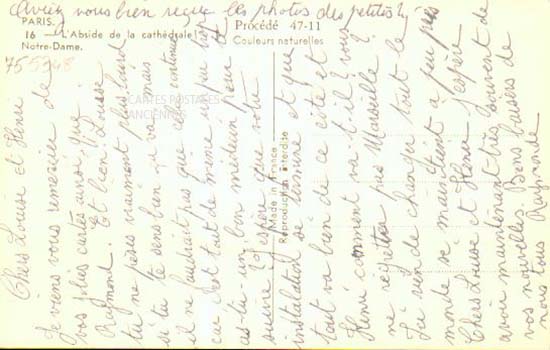 Aviez vous bien reçu les photos des petites ?
PARIS.
16 — L'Abside de la cathédrale
Notre-Dame.
Procédé 47-11
Couleurs naturelles
755348
CARTES POSTALES
ANCIENNES
Made in France
Reproduction interdite
Chers Louise et Henri
Je viens vous remercier de
vos jolies cartes ainsi que
Raymond. Et bien Louise
tu ne pèses vraiment plus lourd
si tu te sens bien ça va mais
il ne faudrait pas que cela continue
car c'est tout de même un peu trop
as-tu un bon médecin pour te
suivre ? J'espère que votre
installation se termine et que
tout va bien de ce côté et
Henri comment va t-il ? vous
ne regrettez pas Marseille ?
Ici rien de changé tout le
monde se maintient à peu près
Chers Louise et Henri J'espère
avoir maintenant très souvent de
vos nouvelles. Bons baisers de
nous tous Raymonde